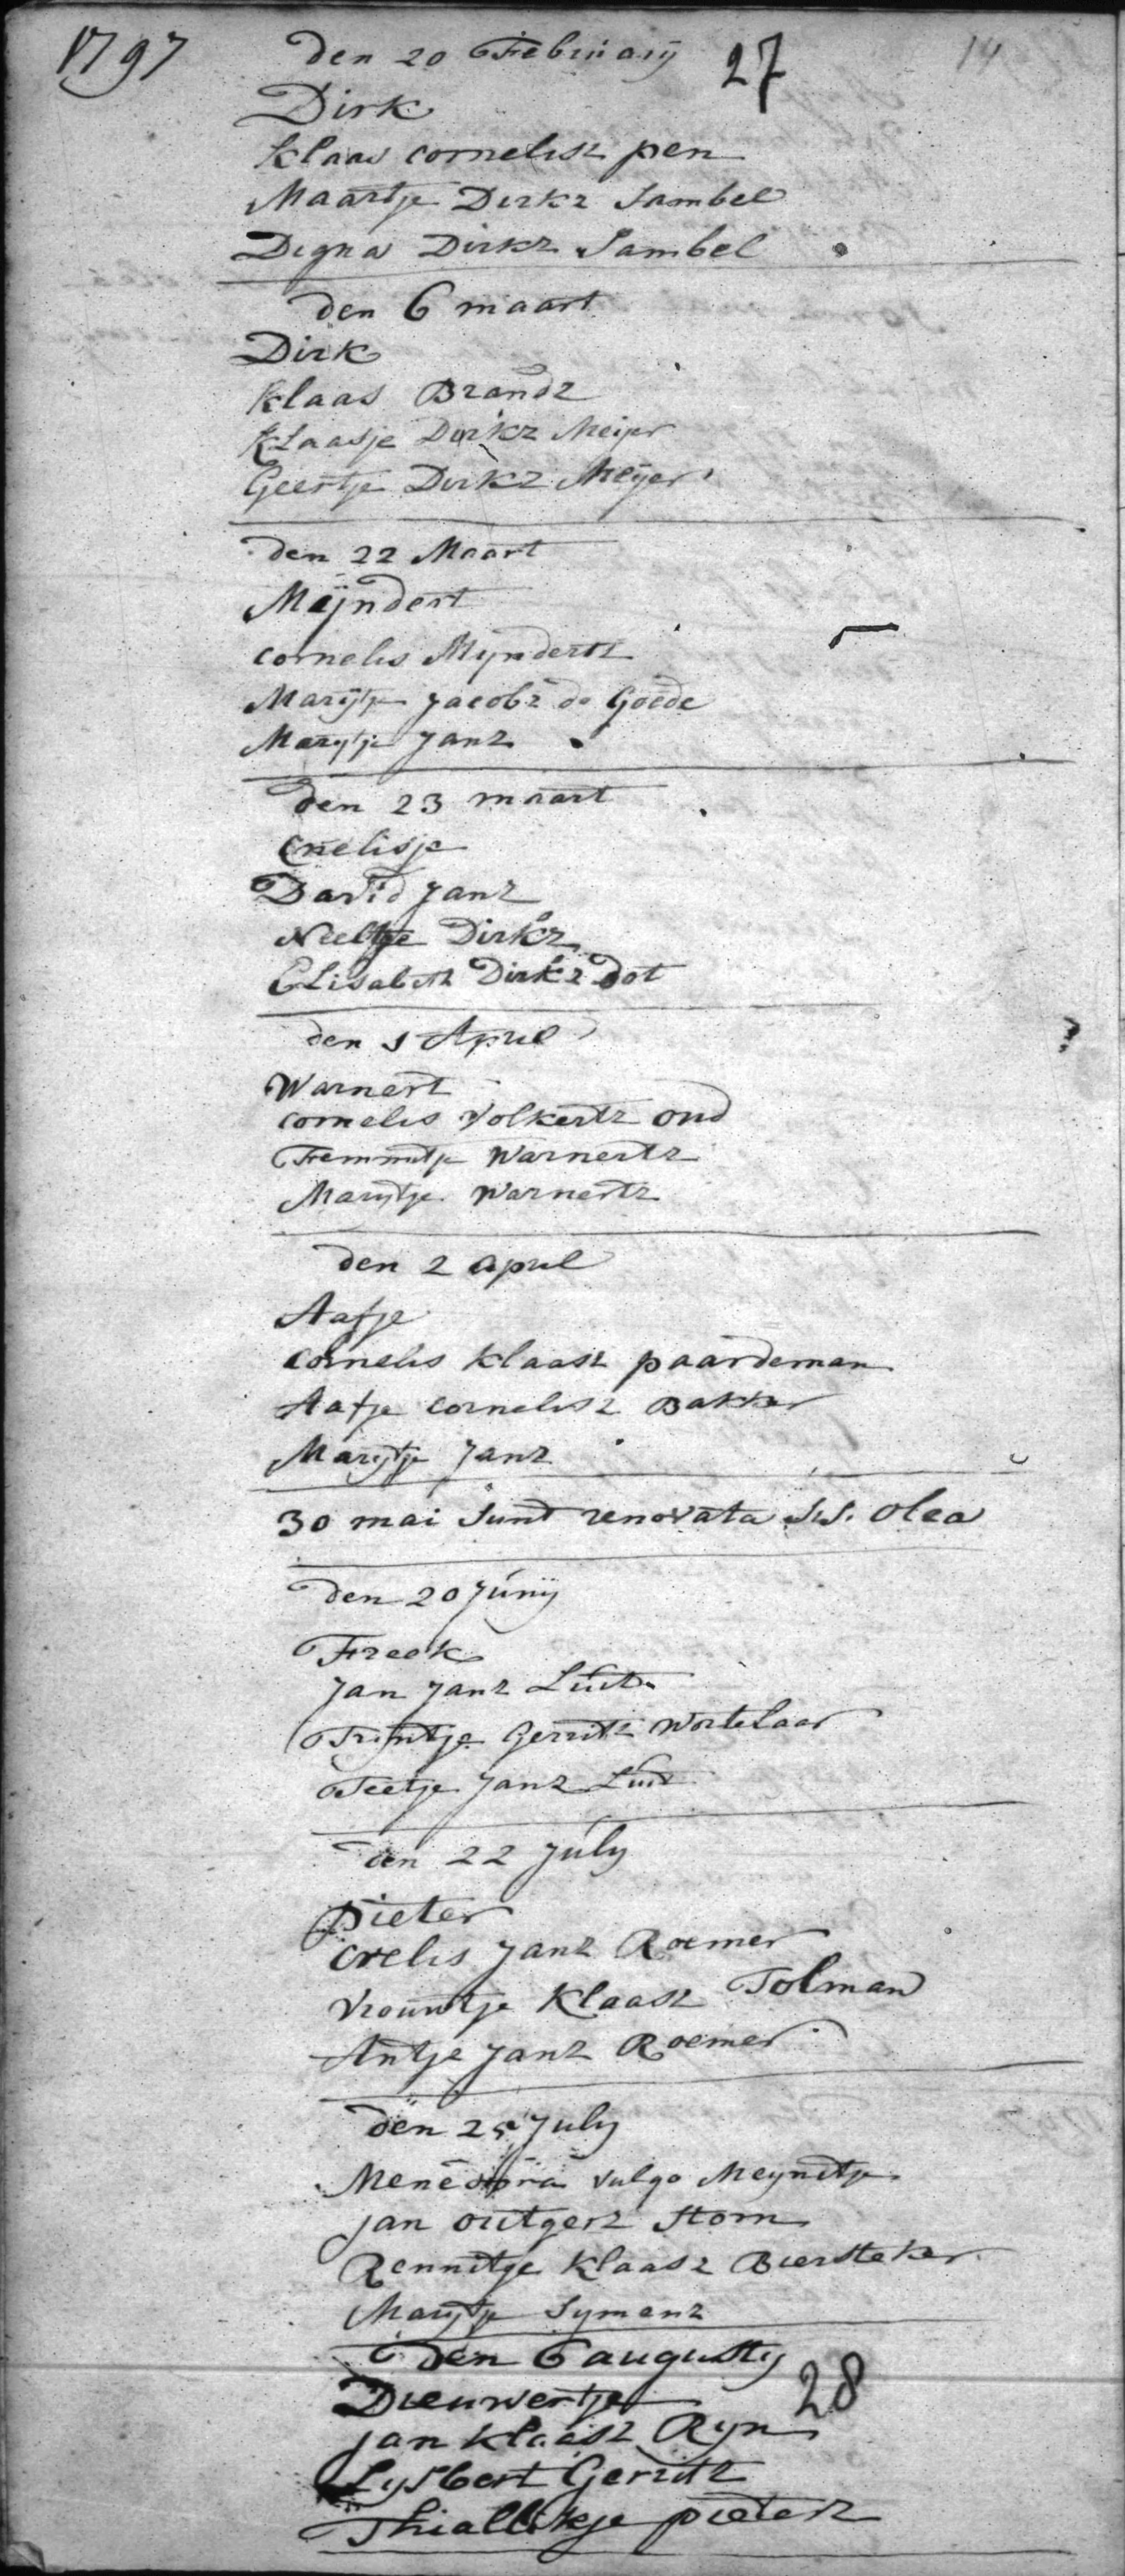 1797 den 20 Februarij 27 14
Dirk
Klaas cornelisz pen
Maartje Dirkz Sambel
Digna Dirkz Sambel
den 6 maart
Dirk
Klaas Brandz
Klaasje Dirkz Meijer
Geertje Dirkz Meijer
den 22 Maart
Mijndert
cornelis Mijndertz
Marijtje Jacobz de Goede
Marijtje Janz
den 23 maart
Cnelisje
David Janz
Neeltje Dirkz
Elisabeth Dirkz Dot
den 1 April
Warnert
cornelis Volkertz oud
Tremmitje Warnertz
Marijtje Warnertz
den 2 april
Aafje
Cornelis Klaasz paardeman
Aafje cornelisz Bakker
Marijtje Janz
30 mai sunt renovata s.s. olea
den 20 Junij
Freek
Jan Janz Luit
Trijntje Gerritz Wortelaar
Teetje Janz Luit
den 22 July
Pieter
Crelis Janz Roemer
Vrouwtje Klaasz Tolman
Antje Janz Roemer
den 25 July
Menedora vulgo Meynitje
Jan outgerz Stom
Rennitje Klaasz Biersteker
Marijtje Symenz
den 6 augustij
Dieuwertje 28
Jan Klaasz Ryn
Lysbert Gerritz
Thiallikje pieterz